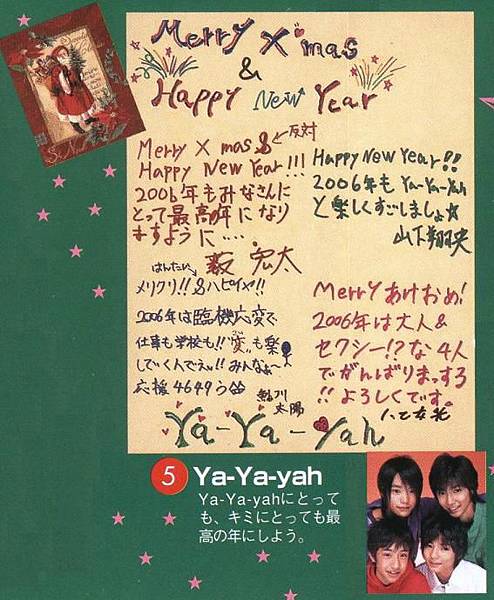 Merry X'mas
&
Happy New Year
Merry X mas &
←反対
Happy New Year!!!
2006年もみなさんに
とって最高の年になり
ますように....
薮 宏太
Happy New Year!!
2006年も Ya-Ya-yah
と楽しくすごしましょ☆
山下翔央
はんたい↓
メリクリ!!&ハピイヤ!!
2006年は臨機応変で
仕事も学校も!!"変"も楽
しでいくんでえッ!!みんなぁ〜
応援4649う
鮎川
太陽
Merryあけおめ!
2006年は大人&
セクシー!?な4人
でがんばりまっする
!!よろしくです。
八乙女光
Ya-Ya-Yah
5 Ya-Ya-yah
Ya-Ya-yahにとって
も、キミにとっても最
高の年にしよう。